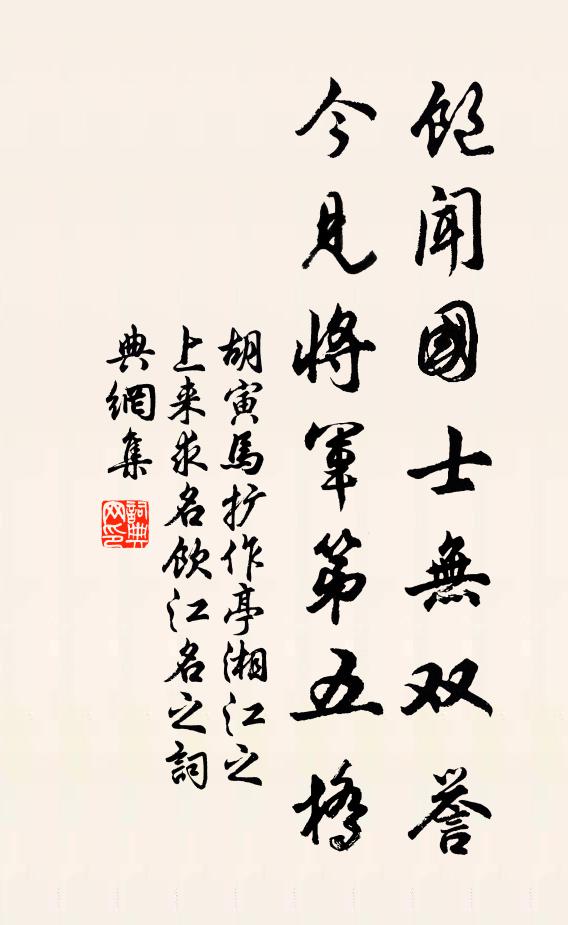 飽聞國士無双誉
今見將軍第五橋
胡寅馬扩作亭湘江之
上来求名飲江名之詞
典網集
詞典网印